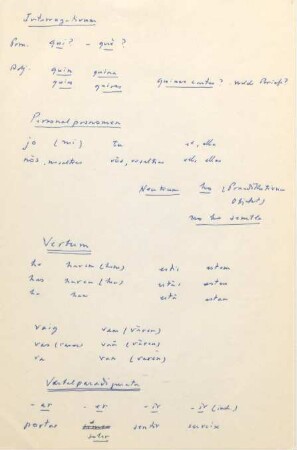 Interrogativum
Pron. qui? - què?
Adj. quin quina
quin quines quines cartes?
Personalpronomen
jo (mi) tu ell, ella
nós, nosaltres vós, vosaltres ells elles
Neutrum ho (Prädikativum
Objekt)
no ho sembla
Verbum
he havem (hem) estic estem
has haveu (heu) estàs estau
ha han està estan
vaig vam (vàrem)
vas (vares) vau (vàreu)
va van (varen)
Verbalparadigmata
-ar -er -ir -ir (inch.)
portar
soler sentir servir